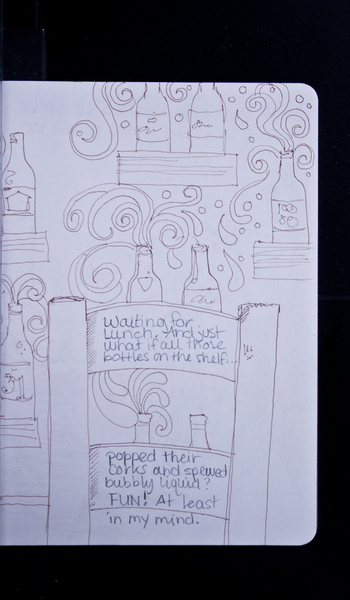 Waiting for
Lunch. And just
what if all those
bottles on the shelf...
popped their
corks and spewed
bubbly liquid?
FUN! At least
in my mind.